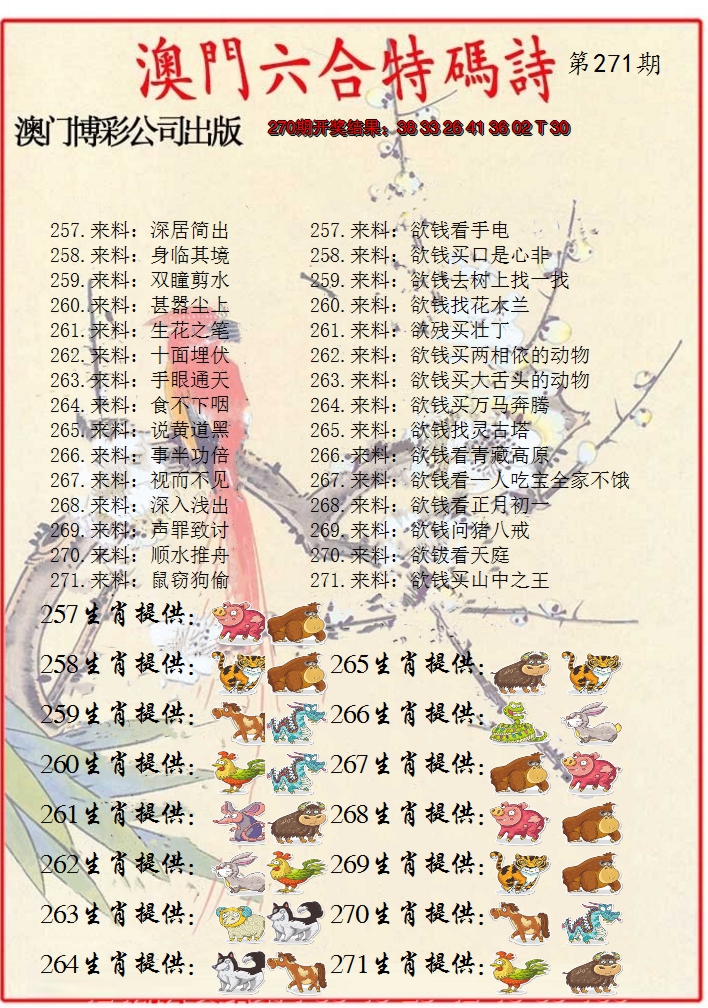 澳門六合特碼詩 第271期
澳门博彩公司出版 270期开奖结果：38 33 26 41 36 02 T 30
257.来料：深居简出 257.来料：欲钱看手电
258.来料：身临其境 258.来料：欲钱买口是心非
259.来料：双瞳剪水 259.来料：欲钱去树上找一找
260.来料：甚嚣尘上 260.来料：欲钱找花木兰
261.来料：生花之笔 261.来料：欲残买壮丁
262.来料：十面埋伏 262.来料：欲钱买两相依的动物
263.来料：手眼通天 263.来料：欲钱买大舌头的动物
264.来料：食不下咽 264.来料：欲钱买万马奔腾
265.来料：说黄道黑 265.来料：欲钱找灵古塔
266.来料：事半功倍 266.来料：欲钱看青藏高原
267.来料：视而不见 267.来料：欲钱看一人吃宝全家不饿
268.来料：深入浅出 268.来料：欲钱看正月初一
269.来料：声罪致讨 269.来料：欲钱问猪八戒
270.来料：顺水推舟 270.来料：欲钹看天庭
271.来料：鼠窃狗偷 271.来料：欲钱买山中之王
257生肖提供：
258生肖提供： 265生肖提供：
259生肖提供： 266生肖提供：
260生肖提供： 267生肖提供：
261生肖提供： 268生肖提供：
262生肖提供： 269生肖提供：
263生肖提供： 270生肖提供：
264生肖提供： 271生肖提供：